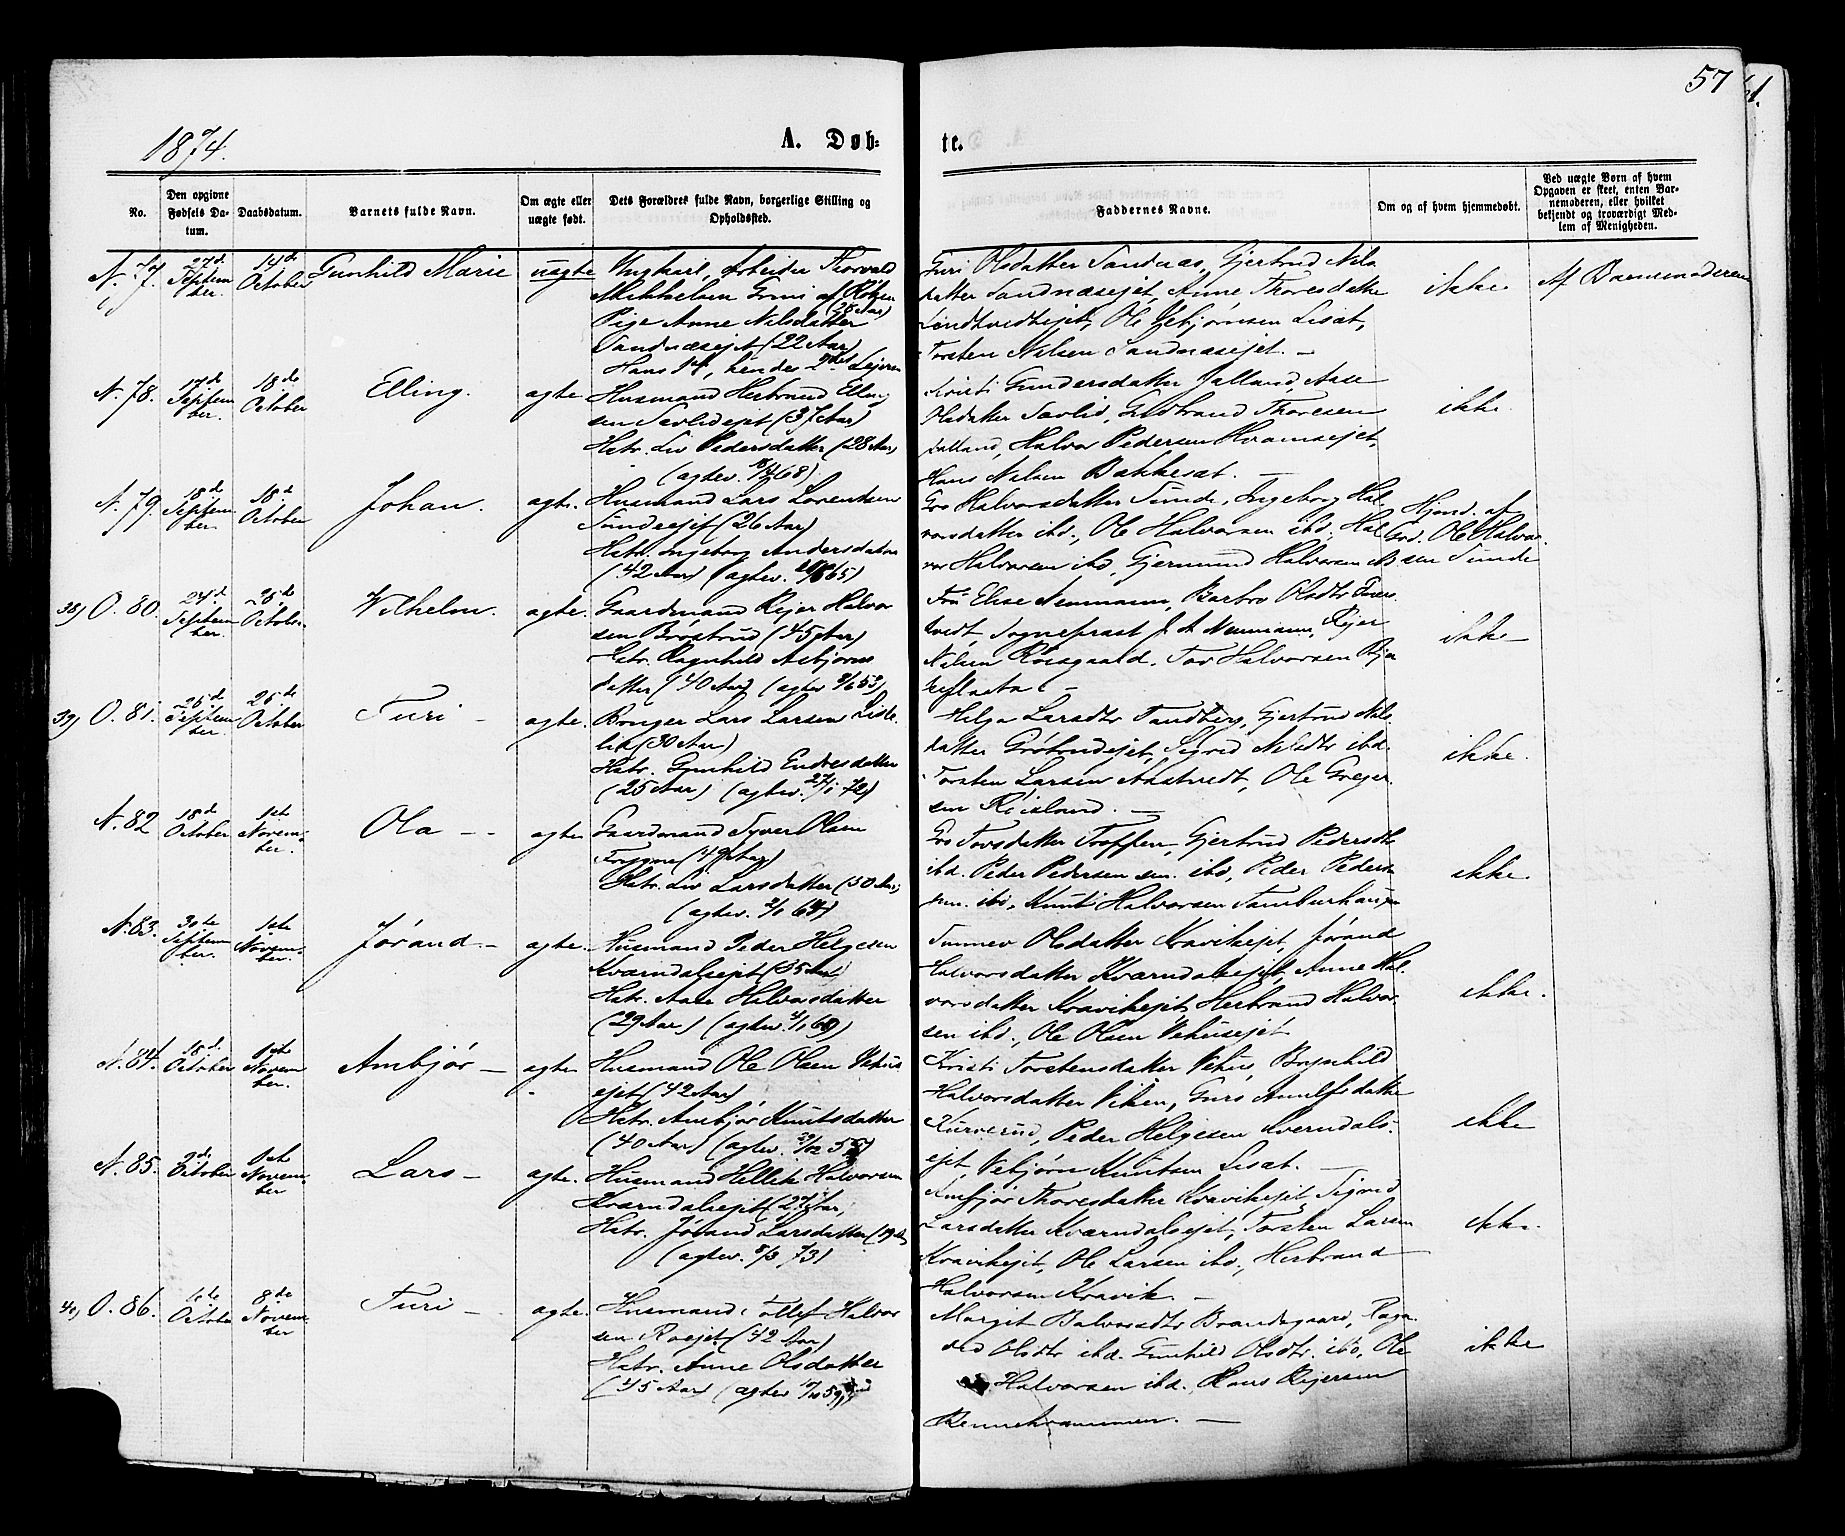 57
1874.
A. Døb-
te.
No.
Den opgivne Fødsels Da-
tum.
Daabsdatum.
Barnets fulde Navn.
Om ægte eller
uægte født.
Dets Forældres fulde Navn, borgerlige Stilling og
Opholdssted.
Faddernes Navne.
Om og af hvem hjemmedøbt.
Ved uægte Børn af hvem
Opgaven er skeet, enten Bar-
nemoderen, eller hvilket
bekjendt og troværdigt Med-
lem af Menigheden.
N. 77.
27de
Septem
ber.
October
Gunhild Marie
uægte
Ungkarl, Arbeider Thorvald
Mikkelsen Grini af
Pige Anne Nilsdatter
Sandnæsejet (22 Aar)
Hans 1ste, hendes 2det Leierm
Guri Olsdatter Sandnæs, Gjertrud Nils
datter Sandnæsejet, Anne Thoresdatter
Ole Vebjørnsen Lisæt,
Torsten Nilsen Sandnæsejet. —
ikke
Af Barnemoderen
N. 78.
17de
Septem
ber.
18de
October
Elling.
ægte
Husmand Herbrand Ellings
sen Savlidejet (37 Aar)
Hstr. Liv Pedersdatter (28 Aar)
Kristi Gundersdatter Jalland, Aase
Olsdatter Savlid, Guldbrand Thoresen
Jalland, Halvor Pedersen
Hans Nilsen Bakkesæt. —
ikke.
N. 79.
18de
Septem
ber.
18de
October
Johan.
ægte.
Husmand Lars Lorentsen
Sundeejet (26 Aar)
Hstr. Ingeborg Andersdatter
(42 Aar)
Gro Halvorsdatter Sunde, Ingeborg Hal
vorsdatter ibd., Ole Halvorsen ibd., Hal
vor Halvorsen ibd, Gjermund Halvorsen ibd
Hjemd. af
Grd. Ole Halvor
sen Sunde
38) O. 80.
24de
Septem
ber.
25de
October.
Wilhelm.
ægte.
Gaardmand Reier Halvor
sen Brøstrud (45 Aar)
Hstr. Ragnhild Asbjørns
datter (40 Aar)
Fru Elise Neumann, Barbro Olsdtr
Sogneprest J. A. Neumann, Reier
Nilsen Tor Halvorsen
ikke —
39) O. 81.
Septem
ber.
25de
October
Turi —
ægte.
Lars Larsen
lid (30 Aar)
Hstr. Gunhild Endresdatter
(25 Aar) (ægtev. 27/1 72)
Helga Larsdtr Tandberg, Gjertrud Nils
datter Grøtrudejet, Sigrid Nilsdtr ibd.
Torsten Larsen Ole Greger
sen —
ikke.
N. 82
18de
October
1ste
Novem-
ber.
Ola —
ægte
Gaardmand Syver Olsen
Frygne (49 Aar)
Hstr. Liv Larsdatter (30 Aar)
Gro Torsdatter Traffen, Gjertrud Pedersdtr
ibd. Peder Pedersen sen. ibd, Peder Peders
jun. ibd, Knut Halvorsen
ikke.
N. 83.
30te
Septem
ber.
1ste
Novem-
ber.
Jørand —
ægte.
Husmand Peder Helgesen
Kværndalsejet (35 Aar)
Hstr. Aase Halvorsdatter
(29 Aar)
Sunnev Olsdatter Kravikejet, Jørand
Halvorsdatter Kværndalsejet, Anne Hal
vorsdatter Kravikejet, Herbrand Halvor
sen ibd., Ole Olsen Vehusejet
ikke.
N. 84.
18de
October
1ste
Novem
ber.
Ambjør —
ægte
Husmand Ole Olsen Vehus
ejet (42 Aar)
Hstr. Ambjør Knutsdatter
(40 Aar)
Kristi Torstensdatter Vehus, Brynhild
Halvorsdatter Viken, Guro
Peder Helgesen Kverndals-
ejet Vebjørn Knutsen Lisæt. —
ikke
N. 85.
October
1ste
Novem
ber
Lars —
ægte.
Husmand Hellik Halvorsen
Kværndalsejet (27 Aar)
Hstr. Jørand Larsdatter
(ægtev. 8/3 73)
Ambjør Thoresdatter Kravikejet, Sigrid
Larsdatter Kværndalsejet, Torsten Larsen
Kravikejet, Ole Larsen ibd., Herbrand
Halvorsen Kravik. —
ikke.
40) O. 86.
October
8de
Novem-
ber
Turi —
ægte.
Husmand Tollef Halvor
sen Raaejet (42 Aar)
Hstr. Anne Olsdatter
(45 Aar)
Margit Halvorsdtr Brandsgaard, Ragn
Olsdtr ibd. Gunhild Olsdtr. ibd, Ole
Halvorsen ibd., Hans Reiersen
—
ikke